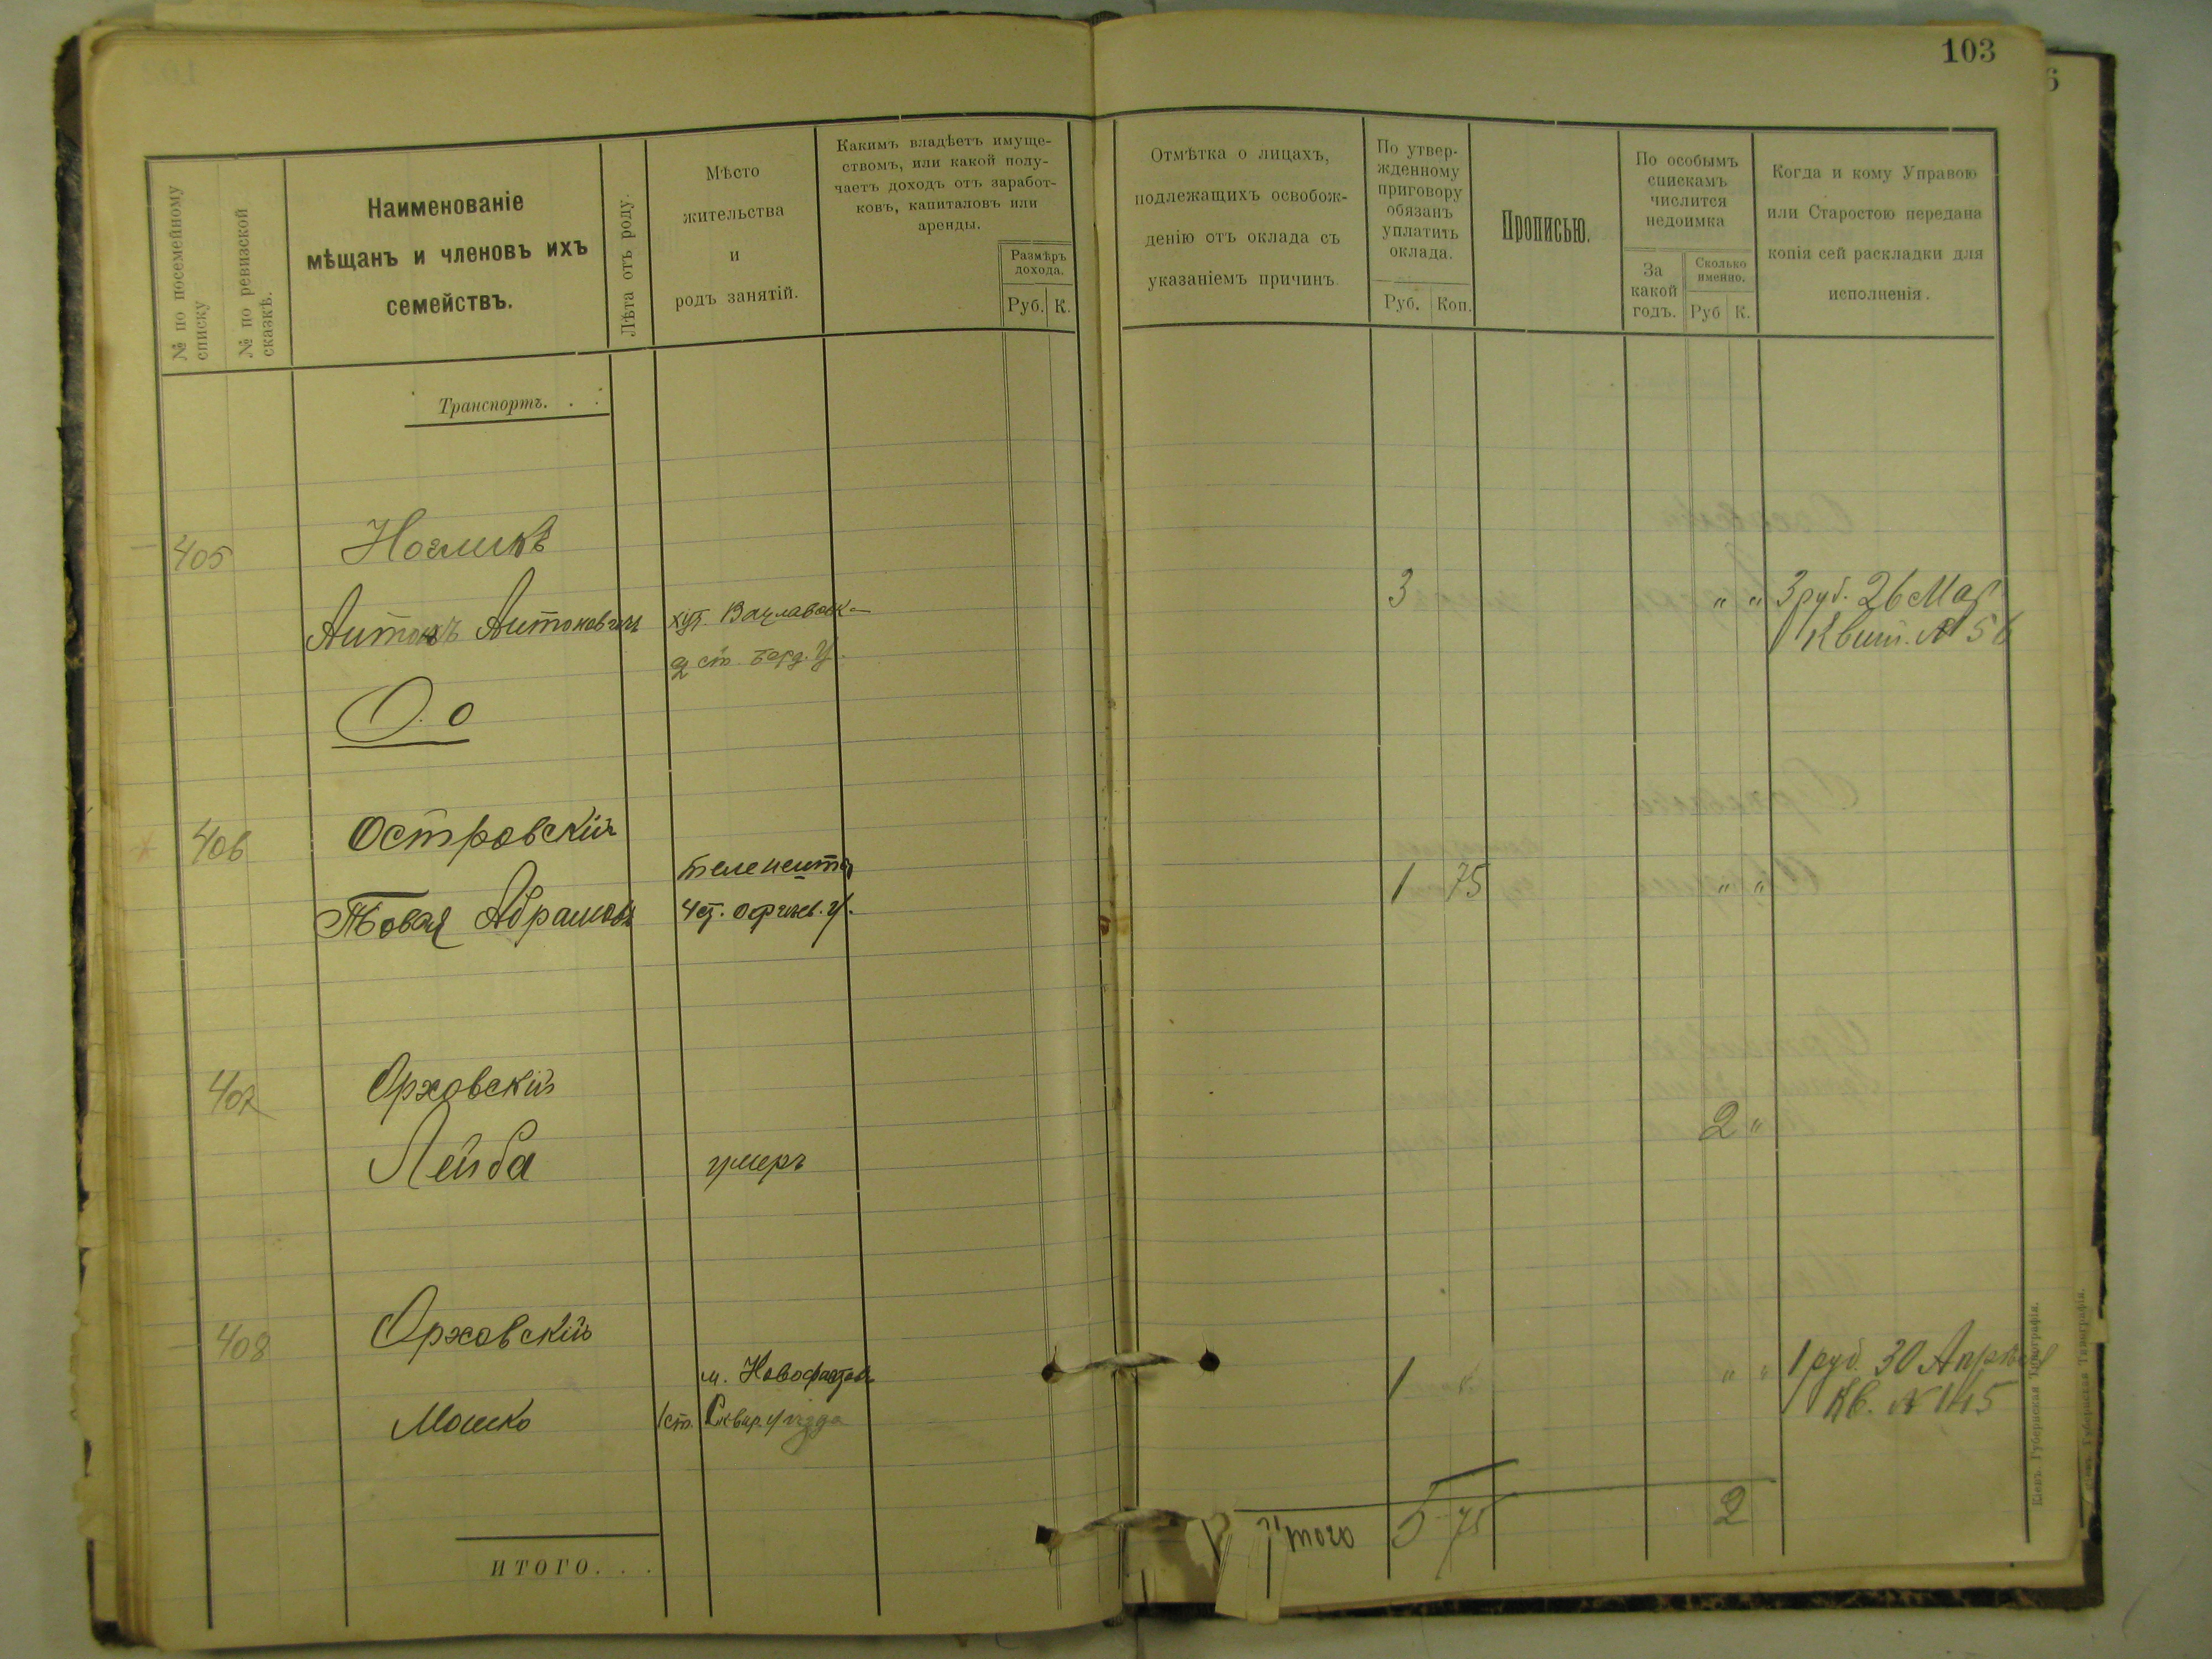 103
№ по посемейному списку
№ по ревизской сказкѣ.
Наименованіе
мѣщанъ и членовъ ихъ
семействъ.
Лѣта отъ роду.
Мѣсто
жительства
и
родъ занятій.
Какимъ владѣетъ имуще-
ствомъ, или какой полу-
чаетъ доходъ отъ заработ-
ковъ, капиталовъ или
аренды.
Размѣръ
дохода.
Руб. К.
Отмѣтка о лицахъ,
подлежащихъ освобож-
денію отъ оклада съ
указаніемъ причинъ
По утвер-
жденному
приговору
обязанъ
уплатить
оклада.
Руб. Коп.
Прописью.
По особымъ
спискамъ
числится
недоимка
За
какой
годъ.
Сколько
именно.
Руб К.
Когда и кому Управою
или Старостою передана
копія сей раскладки для
исполненія.
Транспортъ. . .
405
Антонъ Антоновичъ
3 " " 3 руб. 26 Мар
Квит. № 56
О. о
406 Островскій
Абрамовъ
1 75 " "
407 Орховскій
Лейба умеръ
2 "
408 Орховскій
м. Новофастов
Мошко 1 ст. Сквир. уѣзда
1 " " 1 руб. 30 Апрѣля
Кв. № 145
Итого 5 75 2
ИТОГО. . .
Кіевъ. Губернская Типографія.